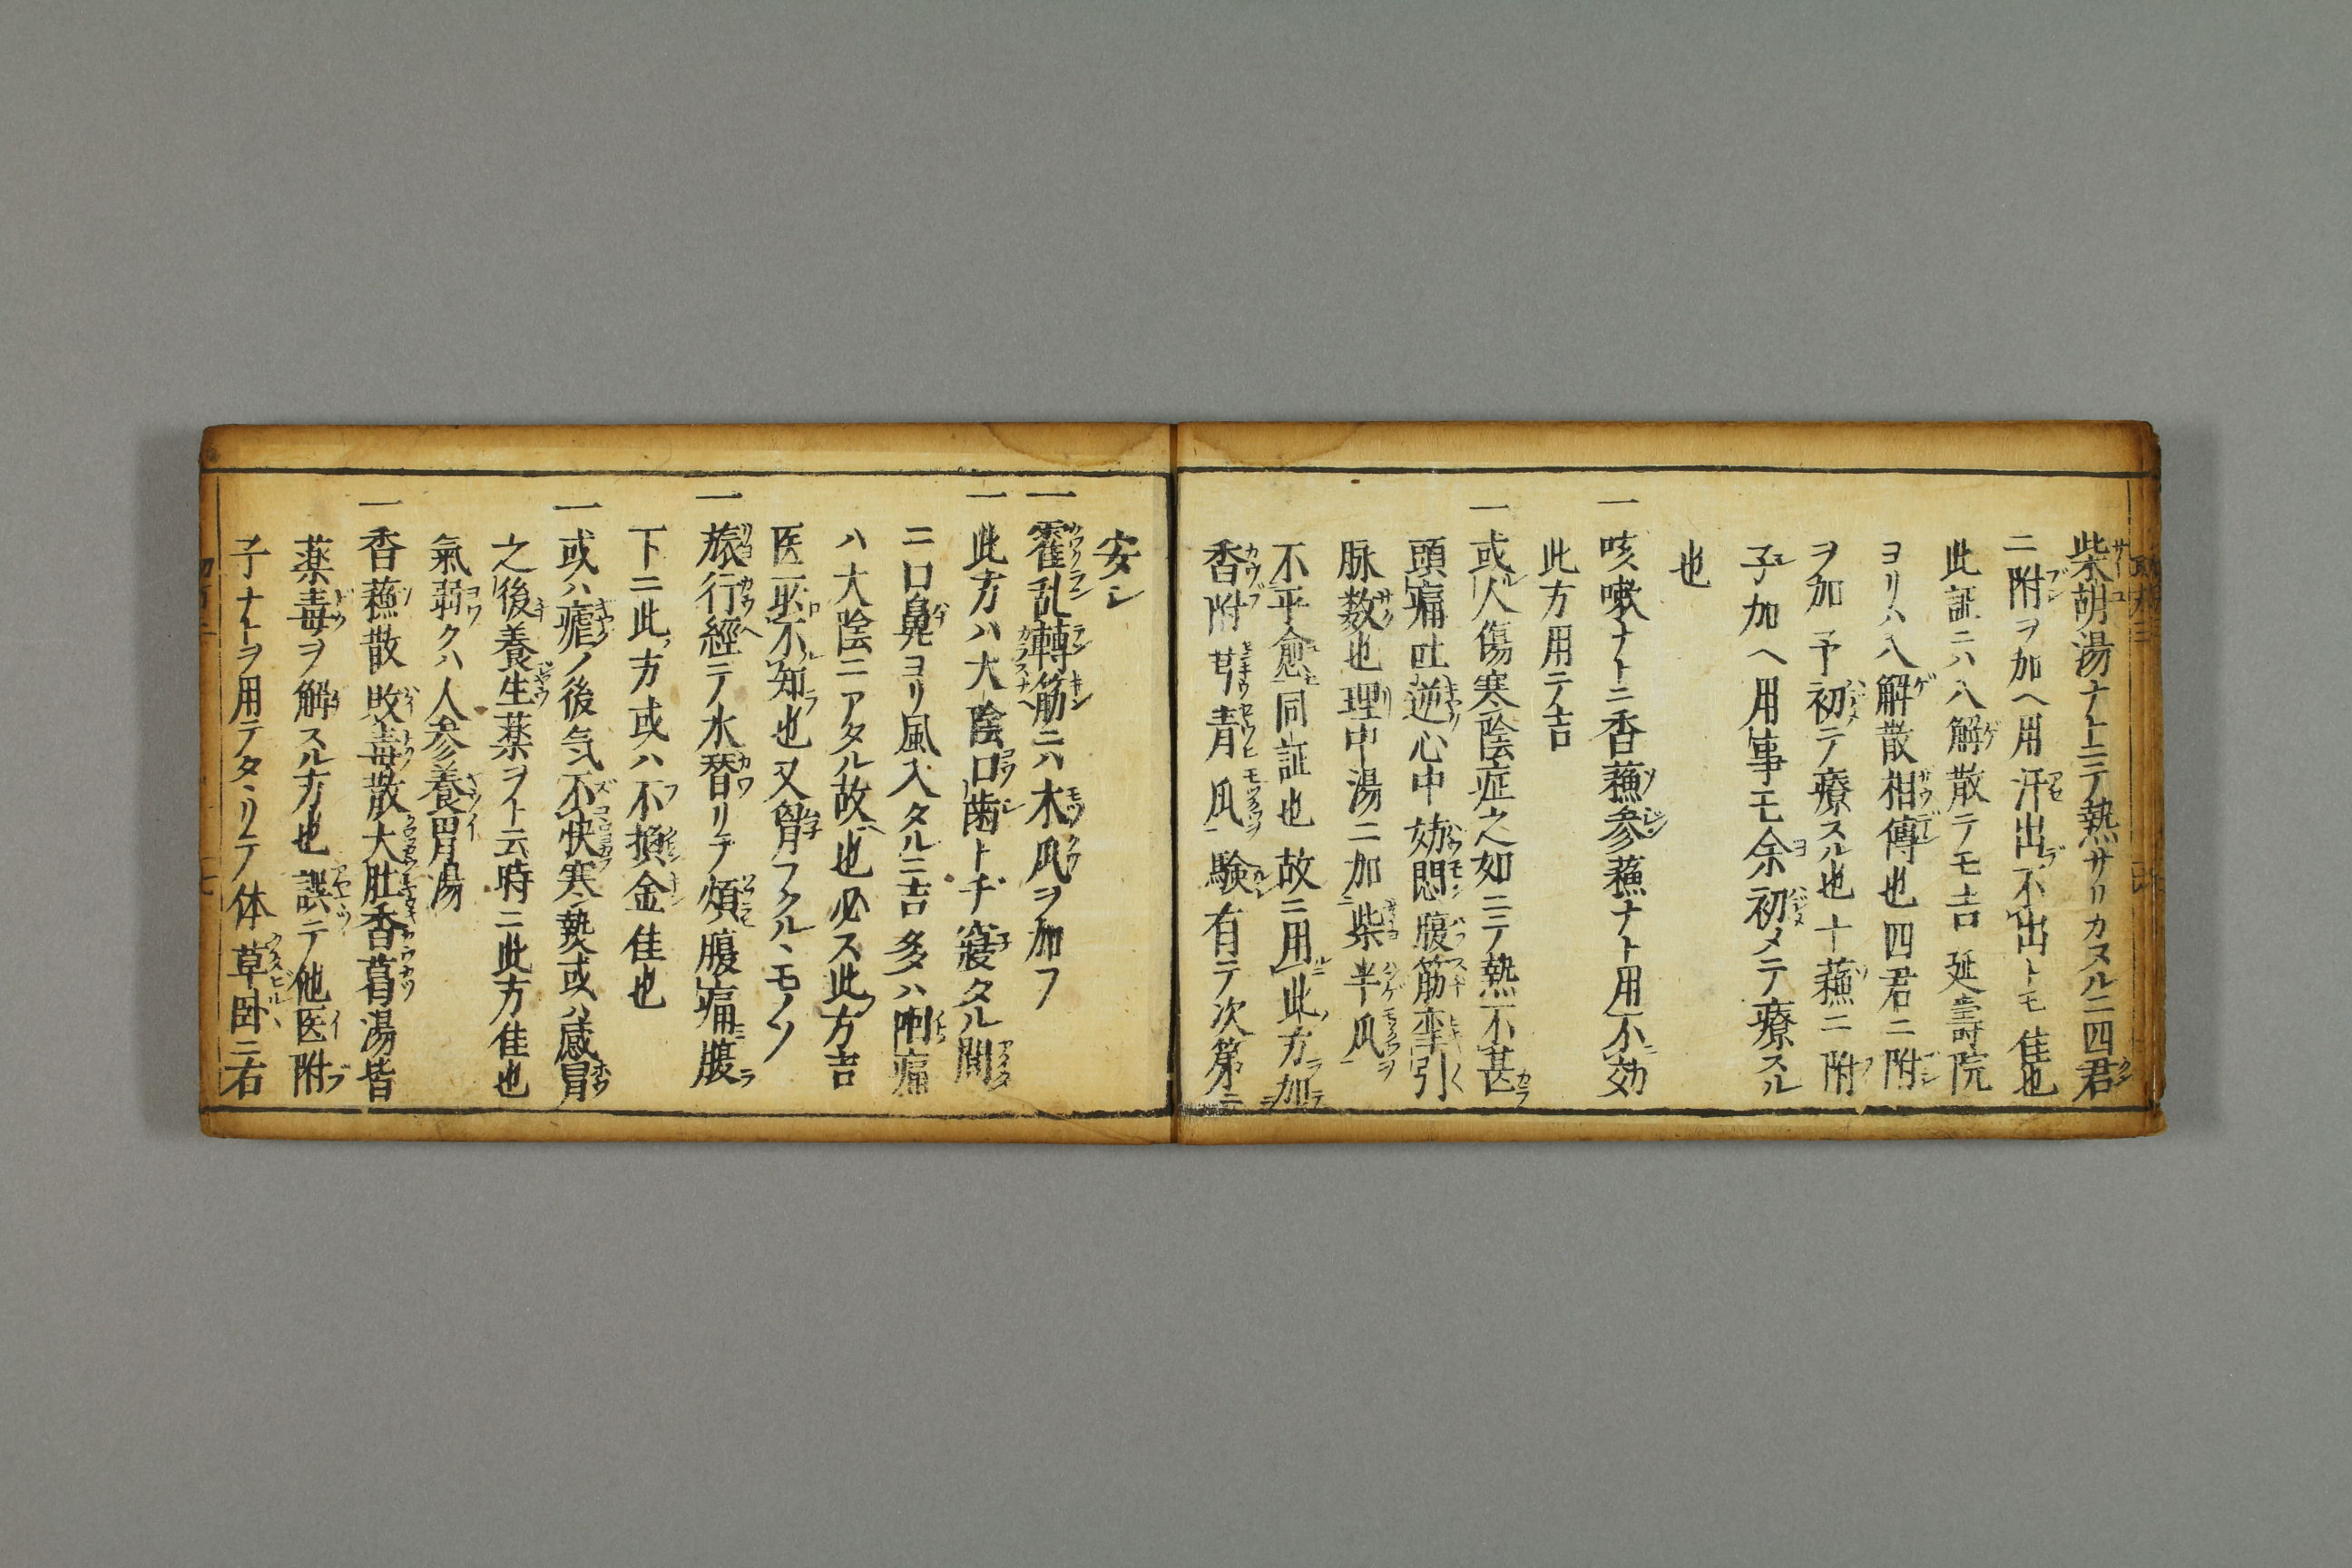 柴胡湯ナトニテ熱サリカヌル二四君
ニ附ヲ加ヘ用汗出不出トモ佳也
此証ニハ八解散テモ吉 延壽院
ヨリハ八解散相傳也四君ニ附
ヲ加 予初テ療スル也十蘓ニ附
子加ヘ用事モ余初メテ療スル
也
一咳嗽ナトニ香蘓参蘓ナト用不効
此方用テ吉
一或人傷寒陰症之如ニテ熱不甚
頭痛吐逆心中効悶腹筋牽引
脉数也理中湯ニ加柴半瓜
不平愈同証也故ニ用此方加
香附芎青瓜験有テ次第ニ
安シ
一霍乱轉筋ニハ木瓜ヲ加フ
一此方ハ大陰口歯トチ寢タル間
ニ口鼻ヨリ風入タルニ吉多ハ咽痛
ハ大陰ニアタル故也必ス此方吉
医不知也又胷フクルヽモノソ
一旅行經テ水替リテ煩腹痛腹
下ニ此方或ハ不換金佳也
一或ハ瘧ノ後気不快寒熱或ハ感冒
之後養生薬ヲト云時ニ此方佳也
氣弱クハ人参養胃湯
一香蘓散敗毒散大肚香葛湯皆
薬毒ヲ解スル方也誤テ他医附
子ナトヲ用テタヽリテ体草臥ニ右